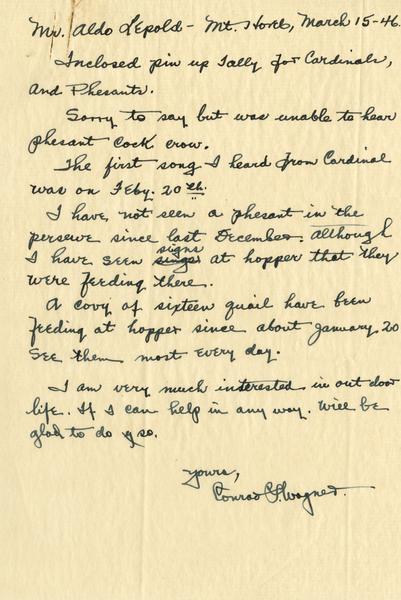 Mr. Aldo Lepold - Mt. Horeb, March 15-46.
Inclosed pin up Tally for Cardinals,
and Phesants.
Sorry to say but was unable to hear
phesant Cock crow.
The first song I heard from Cardinal
was on Feby. 20th.
I have not seen a phesant in the
perseve since last December. although
I have seen signs at hopper that they
were feeding there.
A covy of sixteen quail have been
feeding at hopper since about January 20
See them most every day.
I am very much interested in out door
life. If I can help in any way. Will be
glad to do so.
Yours,
Conrad G. Wagner.